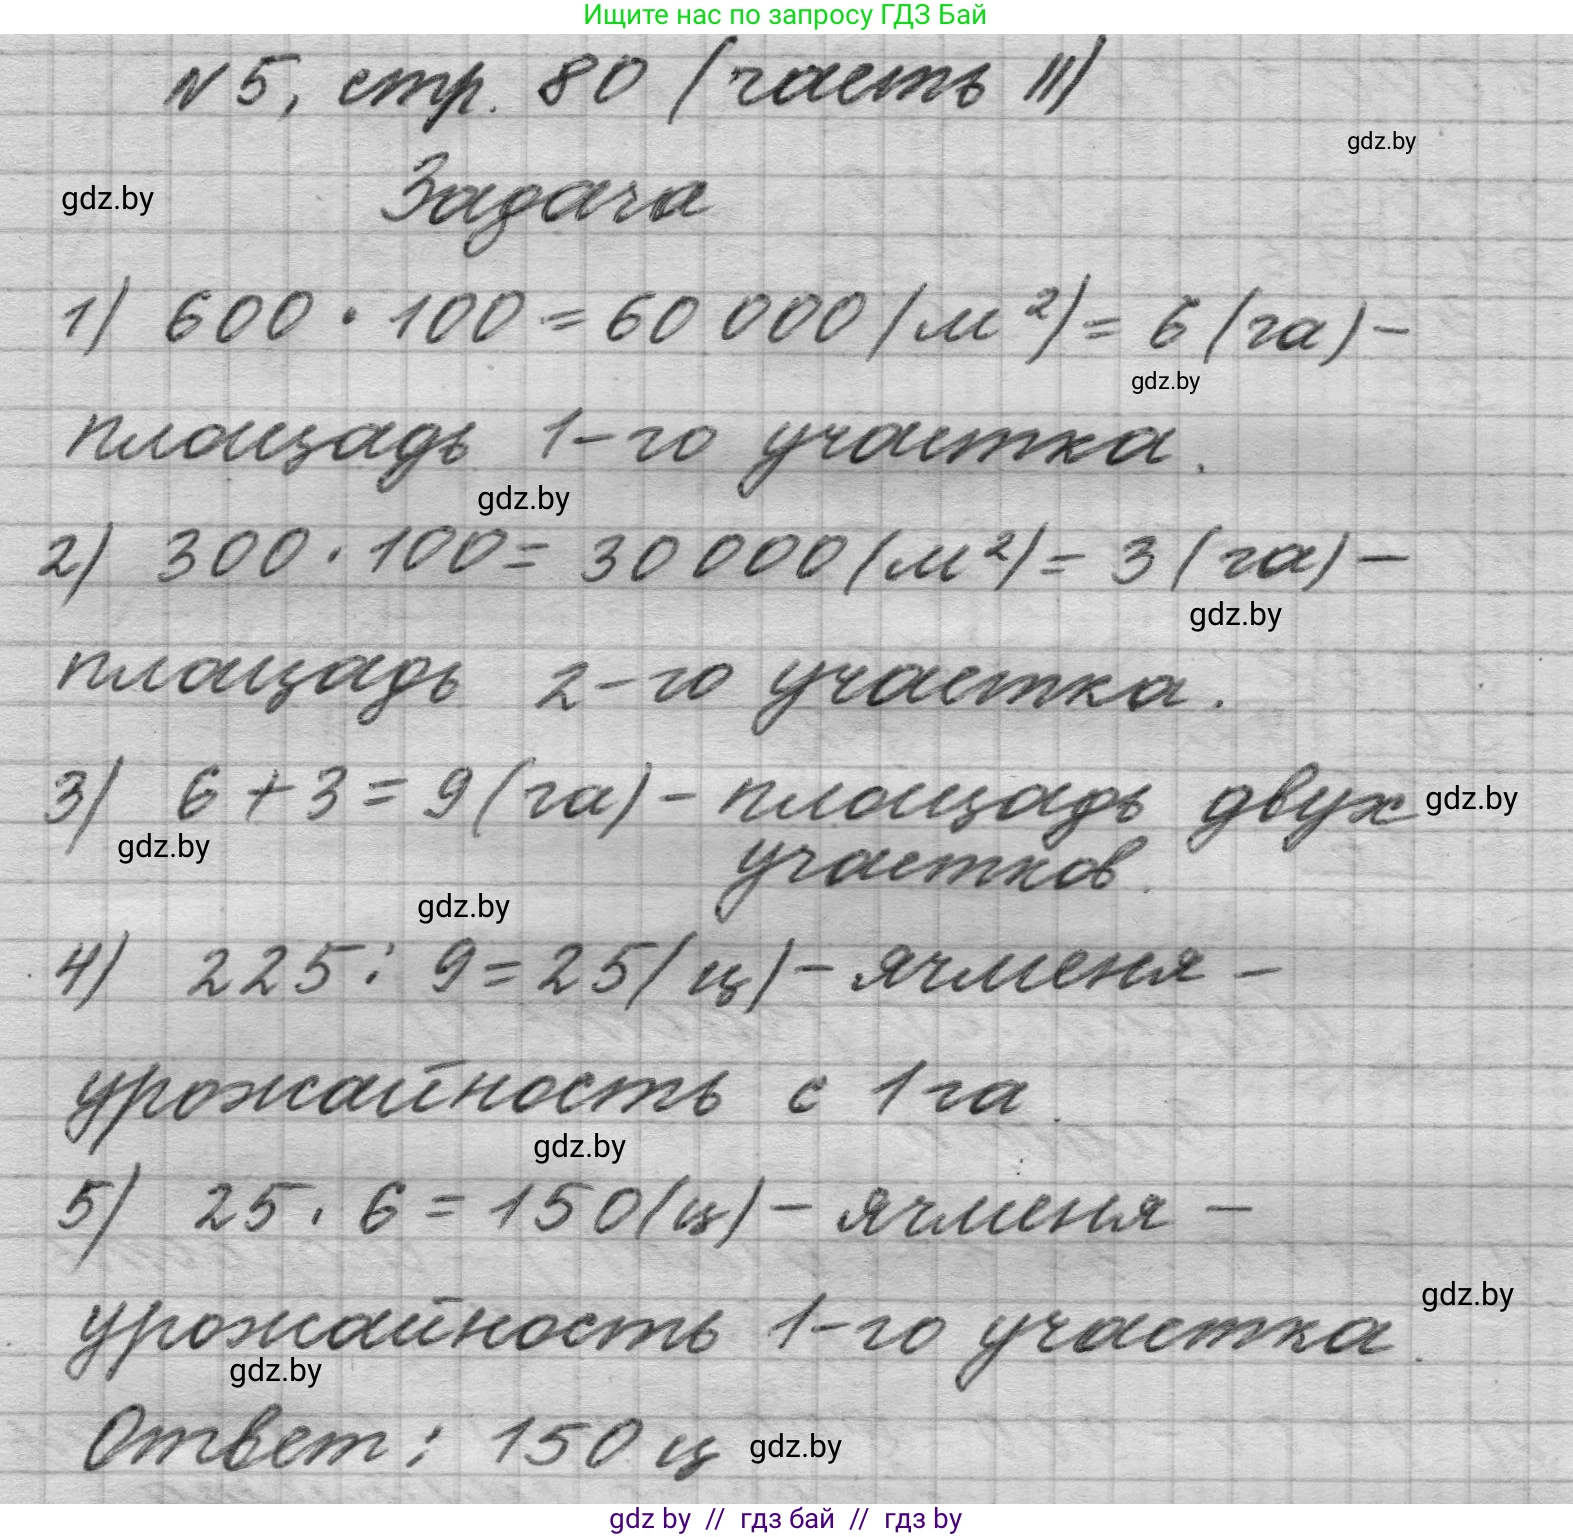 Ищите нас по запросу ГДЗ Бай
№5, стр. 80 (часть II)
gdz.by
gdz.by
Задача
1) 600 · 100 = 60 000 (м²) = 6 (га) –
gdz.by
площадь 1-го участка.
gdz.by
2) 300 · 100 = 30 000 (м²) = 3 (га) –
gdz.by
площадь 2-го участка.
3) 6 + 3 = 9 (га) – площадь двух gdz.by
gdz.by
участков.
gdz.by
4) 225 : 9 = 25 (ц) – ячменя –
урожайность с 1 га.
gdz.by
5) 25 · 6 = 150 (ц) – ячменя –
gdz.by
урожайность 1-го участка.
gdz.by
Ответ: 150 ц gdz.by
gdz by // гдз бай // гдз by